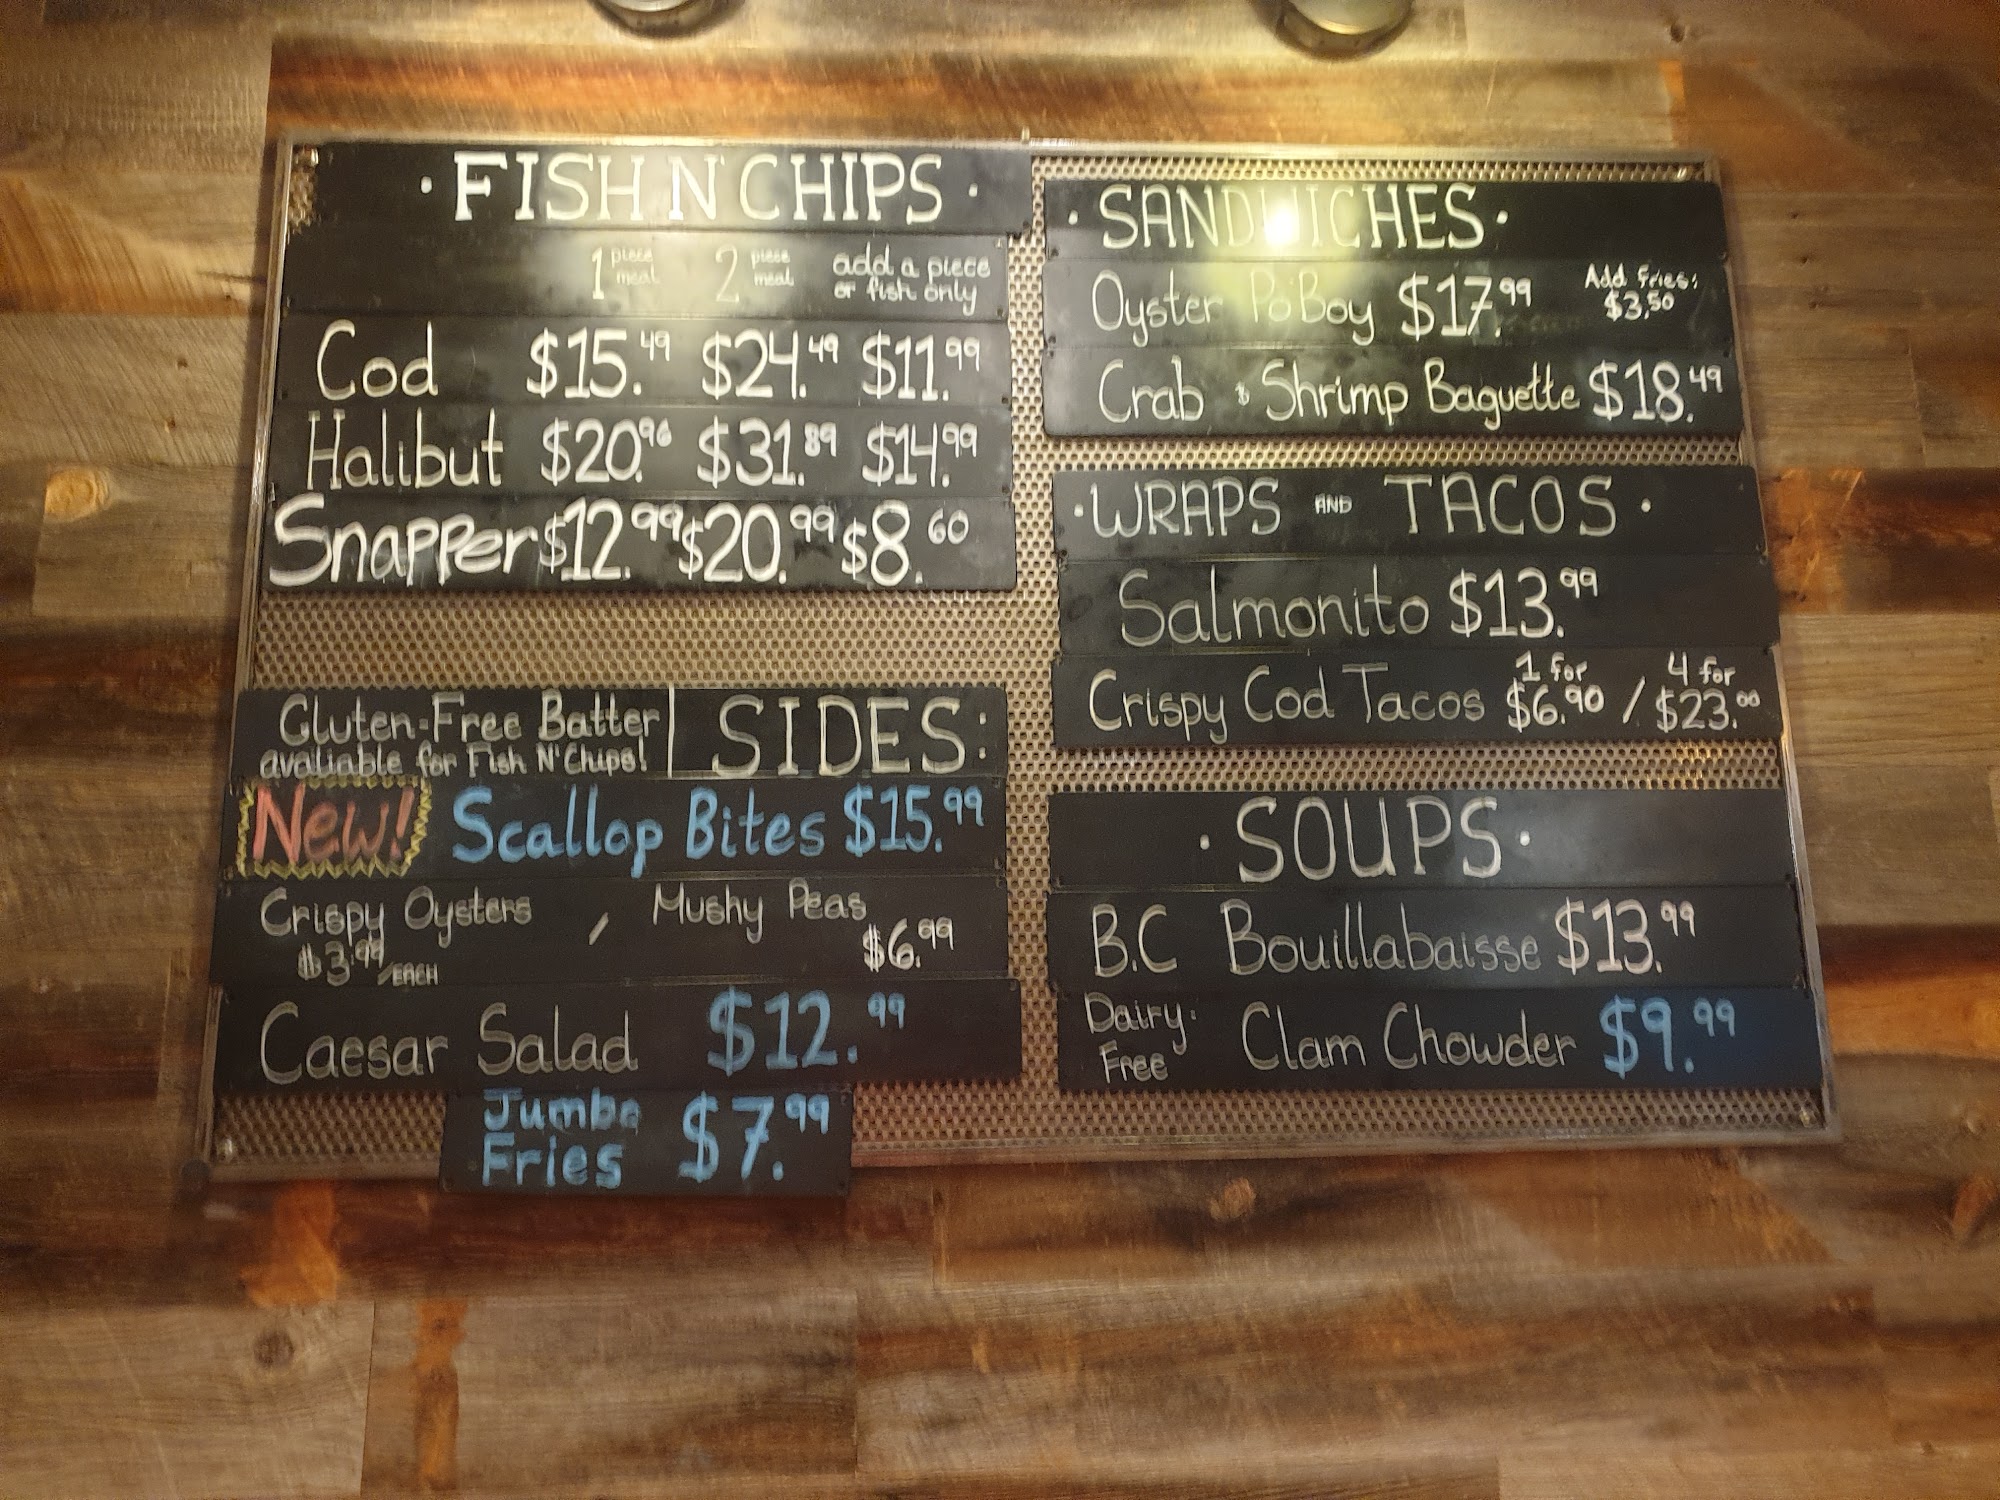 · FISH N' CHIPS ·
1 piece meal 2 piece meal add a piece or fish only
Cod $15.49 $24.49 $11.99
Halibut $20.96 $31.89 $14.99
Snapper $12.99 $20.99 $8.60
Gluten-Free Batter
avaliable for Fish N' Chips!
SIDES:
New! Scallop Bites $15.99
Crispy Oysters / Mushy Peas
$3.99/EACH $6.99
Caesar Salad $12.99
Jumbo
Fries $7.99
· SANDWICHES ·
Oyster Po'Boy $17.99 Add Fries: $3.50
Crab & Shrimp Baguette $18.49
· WRAPS AND TACOS ·
Salmonito $13.99
Crispy Cod Tacos 1 for $6.90 / 4 for $23.00
· SOUPS ·
B.C Bouillabaisse $13.99
Dairy-Free Clam Chowder $9.99